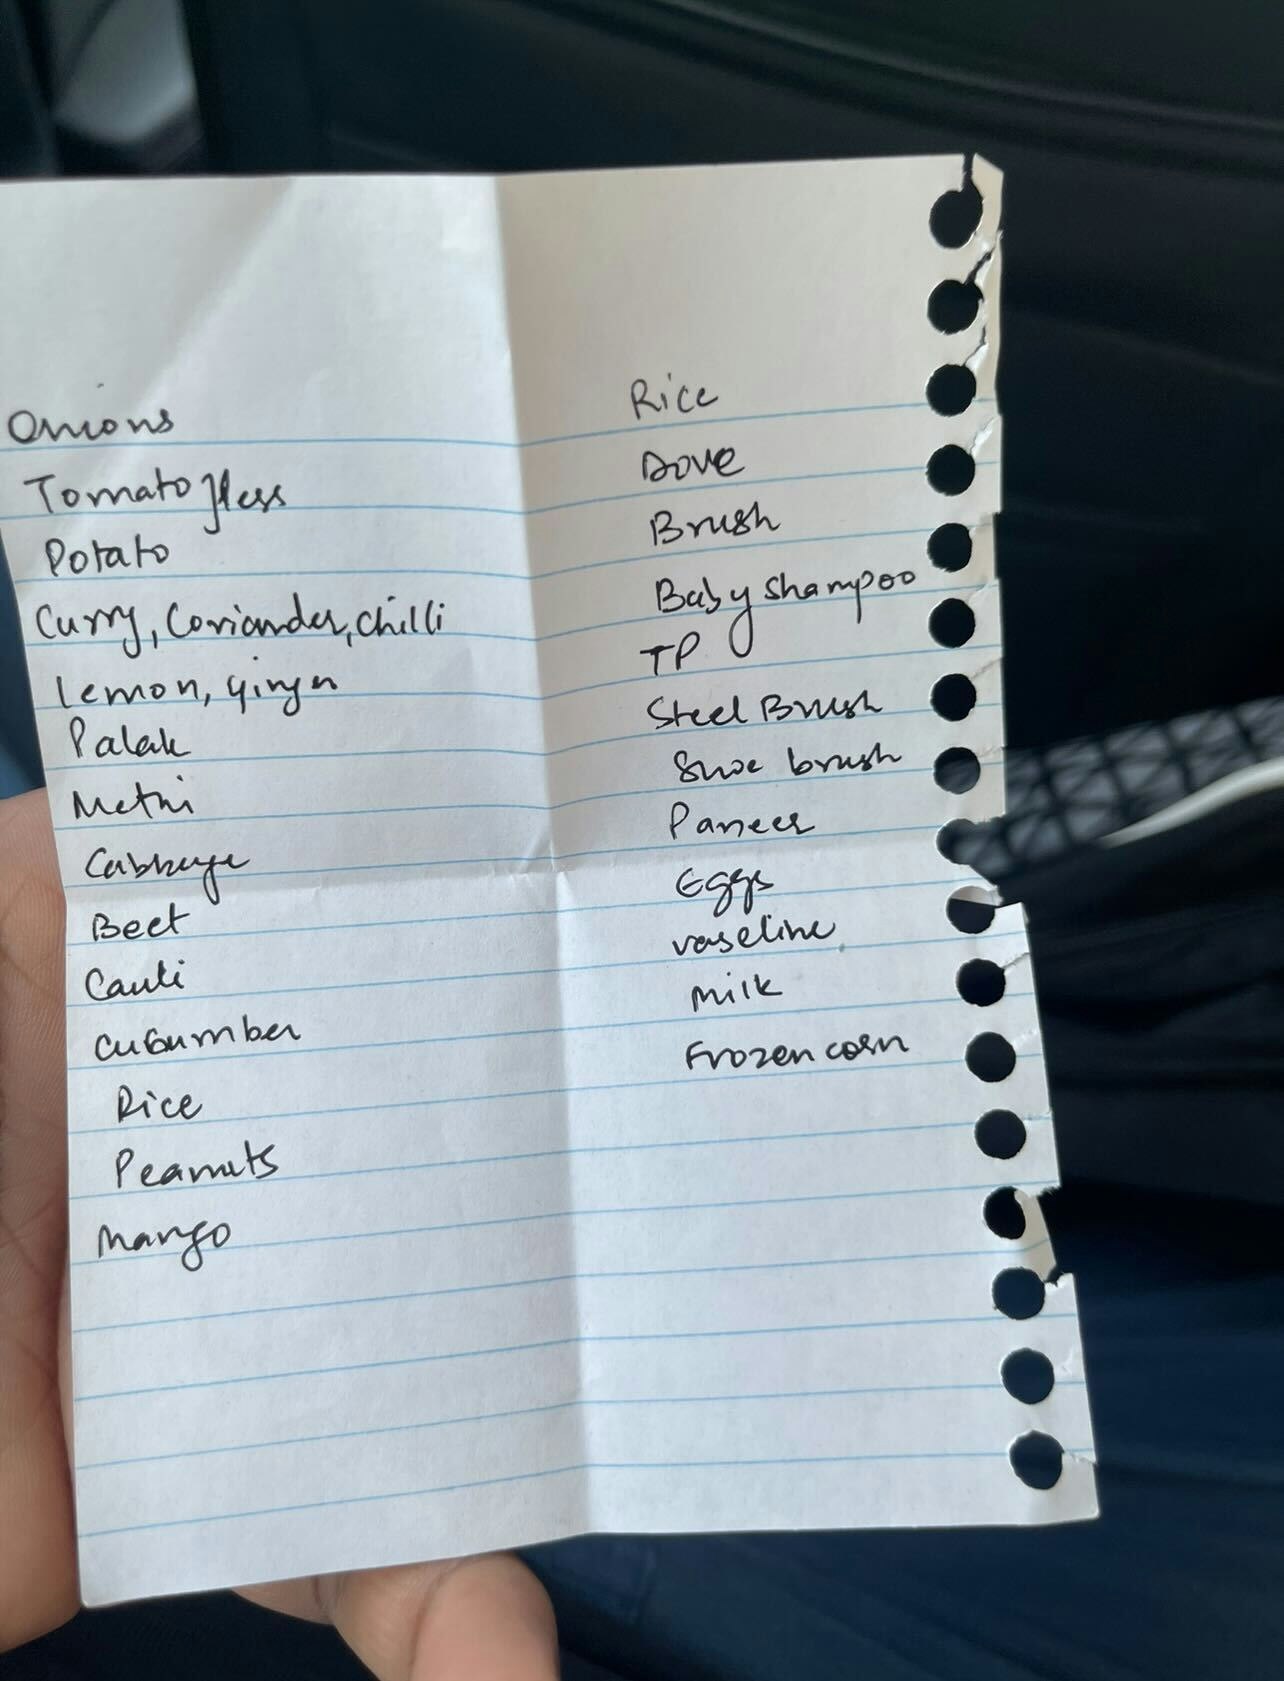 Onions
Tomato } less
Potato
Curry, Coriander, Chilli
Lemon, Ginger
Palak
Methi
Cabbage
Beet
Cauli
Cucumber
Rice
Peanuts
Mango
Rice
Dove
Brush
Baby Shampoo
TP
Steel Brush
Shoe brush
Paneer
Eggs
Vaseline
Milk
Frozen corn